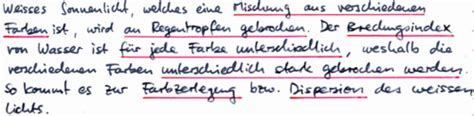 Weisses Sonnenlicht, welches eine Mischung aus verschiedenen
Farben ist, wird an Regentropfen gebrochen. Der Brechungsindex
von Wasser ist für jede Farbe unterschiedlich, weshalb die
verschiedenen Farben unterschiedlich stark gebrochen werden.
So kommt es zur Farbzerlegung bzw. Dispersion des weissen
Lichts.